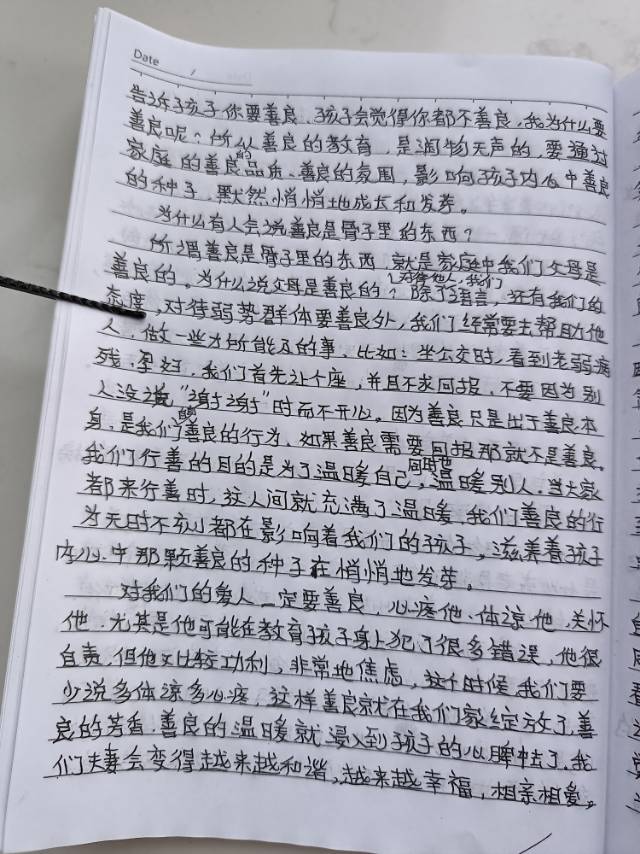 Date
告诉孩子你要善良,孩子会觉得你都不善良,我为什么要
善良呢?所以善良的教育,是润物无声的,要通过
家庭的善良的品质、善良的氛围,影响孩子内心中善良
的种子,默然悄悄地成长和发芽。
为什么有人会说善良是骨子里的东西?
所谓善良是骨子里的东西,就是家庭中我们父母是
善良的。为什么说父母是善良的?除了语言,还有我们的
对待他人,我们
态度,对待弱势群体要善良外,我们经常要去帮助他
人,做一些力所能及的事,比如:坐公交时,看到老弱病
残、孕妇,我们首先让个座,并且不求回报,不要因为别
人没说“谢谢”时而不开心。因为善良只是出于善良本
身,是我们的善良的行为,如果善良需要回报那就不是善良。
我们行善的目的是为了温暖自己,同时也温暖别人,当大家
都来行善时,这人间就充满了温暖,我们善良的行
为无时不刻都在影响着我们的孩子,滋养着孩子
内心中那颗善良的种子在悄悄地发芽。
对我们的爱人一定要善良,心疼他、体谅他、关怀
他,尤其是他可能在教育孩子身上犯了很多错误,他很
自责,但他又比较功利,非常地焦虑,这个时候,我们要
少说多体谅多心疼,这样善良就在我们家绽放了,善
良的芳香,善良的温暖就浸入到孩子的心脾中去了,我
们夫妻会变得越来越和谐,越来越幸福,相亲相爱。